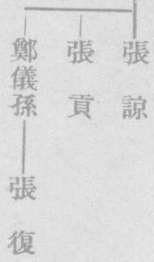 張諒
張貢
鄭儀孫
張復